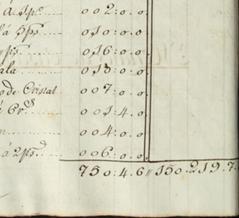 á 2ps. 002:0.0
á 5ps 010:0.0
yps 016:0.0
ala 018:0.0
ode Cristal 007:0.0
é 6rs 001:4.0
n 004:0.0
á 2ps 006:0.0
750:4.6 // 150.219.7